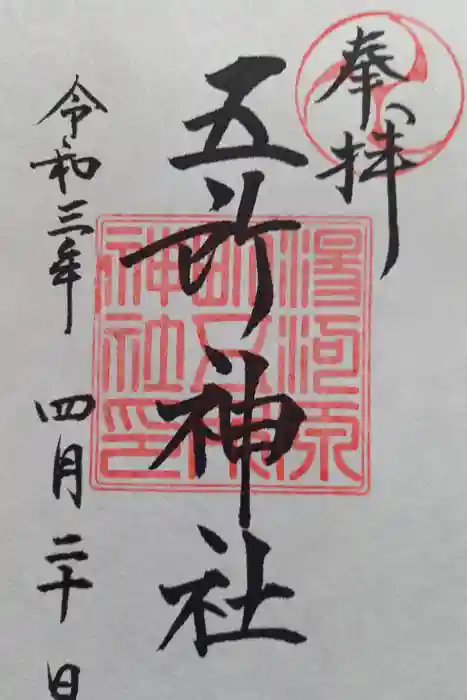 奉拝
五所神社
湯河原
町五所
神社印
令和三年 四月二十日